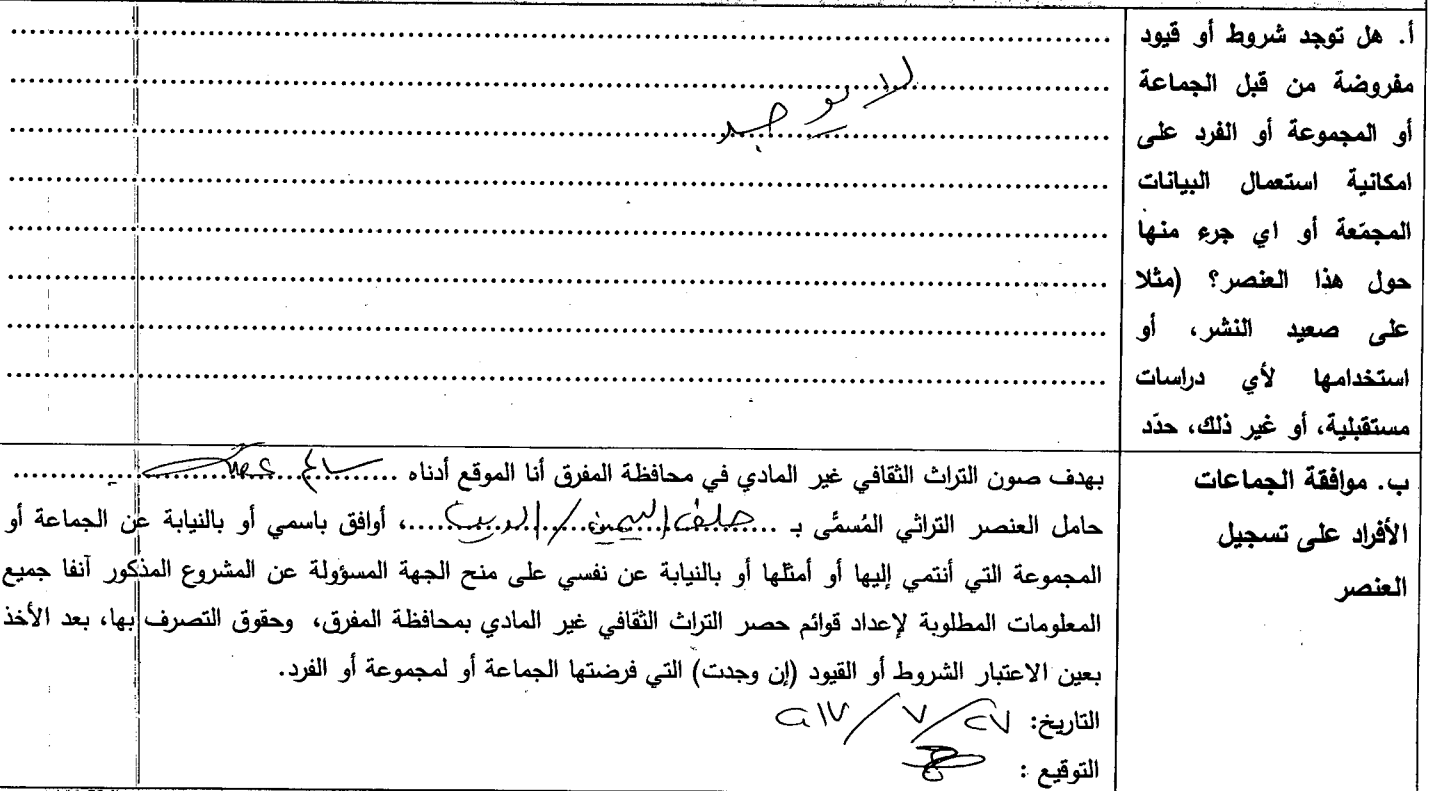 أ. هل توجد شروط أو قيود
مفروضة من قبل الجماعة
أو المجموعة أو الفرد على
امكانية استعمال البيانات
المجمّعة أو اي جرء منها
حول هذا العنصر؟ (مثلا
على صعيد النشر، أو
استخدامها لأي دراسات
مستقبلية، أو غير ذلك، حدّد
لا يوجد
ب. موافقة الجماعات
الأفراد على تسجيل
العنصر
بهدف صون التراث الثقافي غير المادي في محافظة المفرق أنا الموقع أدناه
حامل العنصر التراثي المُسمَّى بـ حلف اليمين / ، أوافق باسمي أو بالنيابة عن الجماعة أو
المجموعة التي أنتمي إليها أو أمثلها أو بالنيابة عن نفسي على منح الجهة المسؤولة عن المشروع المذكور آنفا جميع
المعلومات المطلوبة لإعداد قوائم حصر التراث الثقافي غير المادي بمحافظة المفرق، وحقوق التصرف بها، بعد الأخذ
بعين الاعتبار الشروط أو القيود (إن وجدت) التي فرضتها الجماعة أو لمجموعة أو الفرد.
التاريخ: ٢٧ / ٧ /
التوقيع :